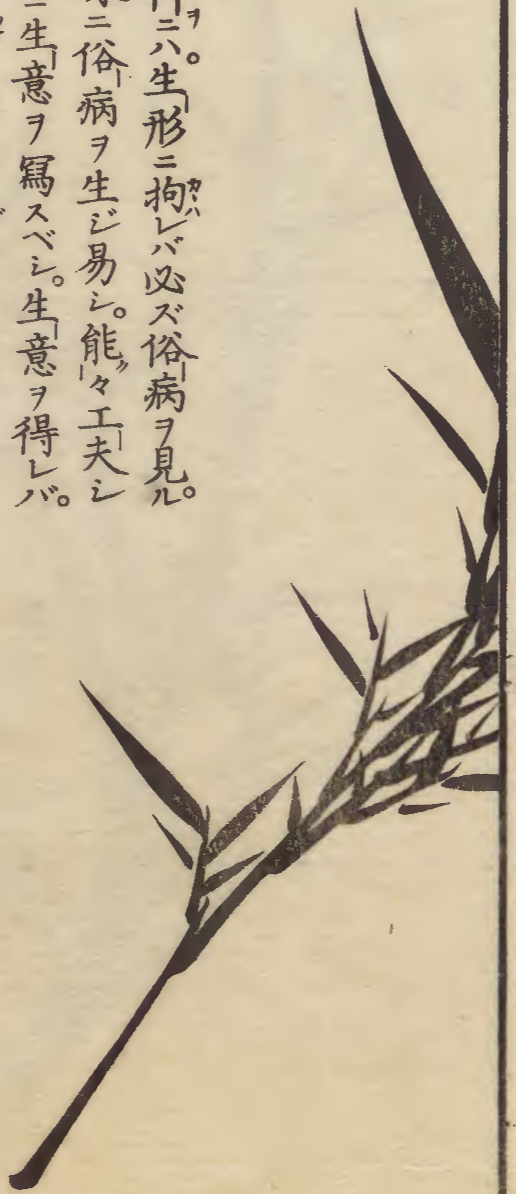 ニハ生形ニ拘レバ必ズ俗病ヲ見ル。
ニ俗病ヲ生ジ易シ。能々工夫シ
ニ生意ヲ寫スベシ。生意ヲ得レバ。